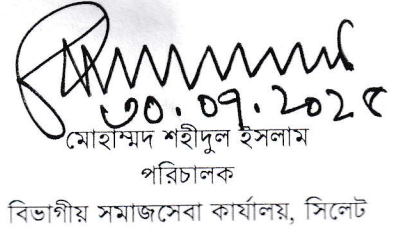 ৩০.০৭.২০২৫
মোহাম্মদ শহীদুল ইসলাম
পরিচালক
বিভাগীয় সমাজসেবা কার্যালয়, সিলেট